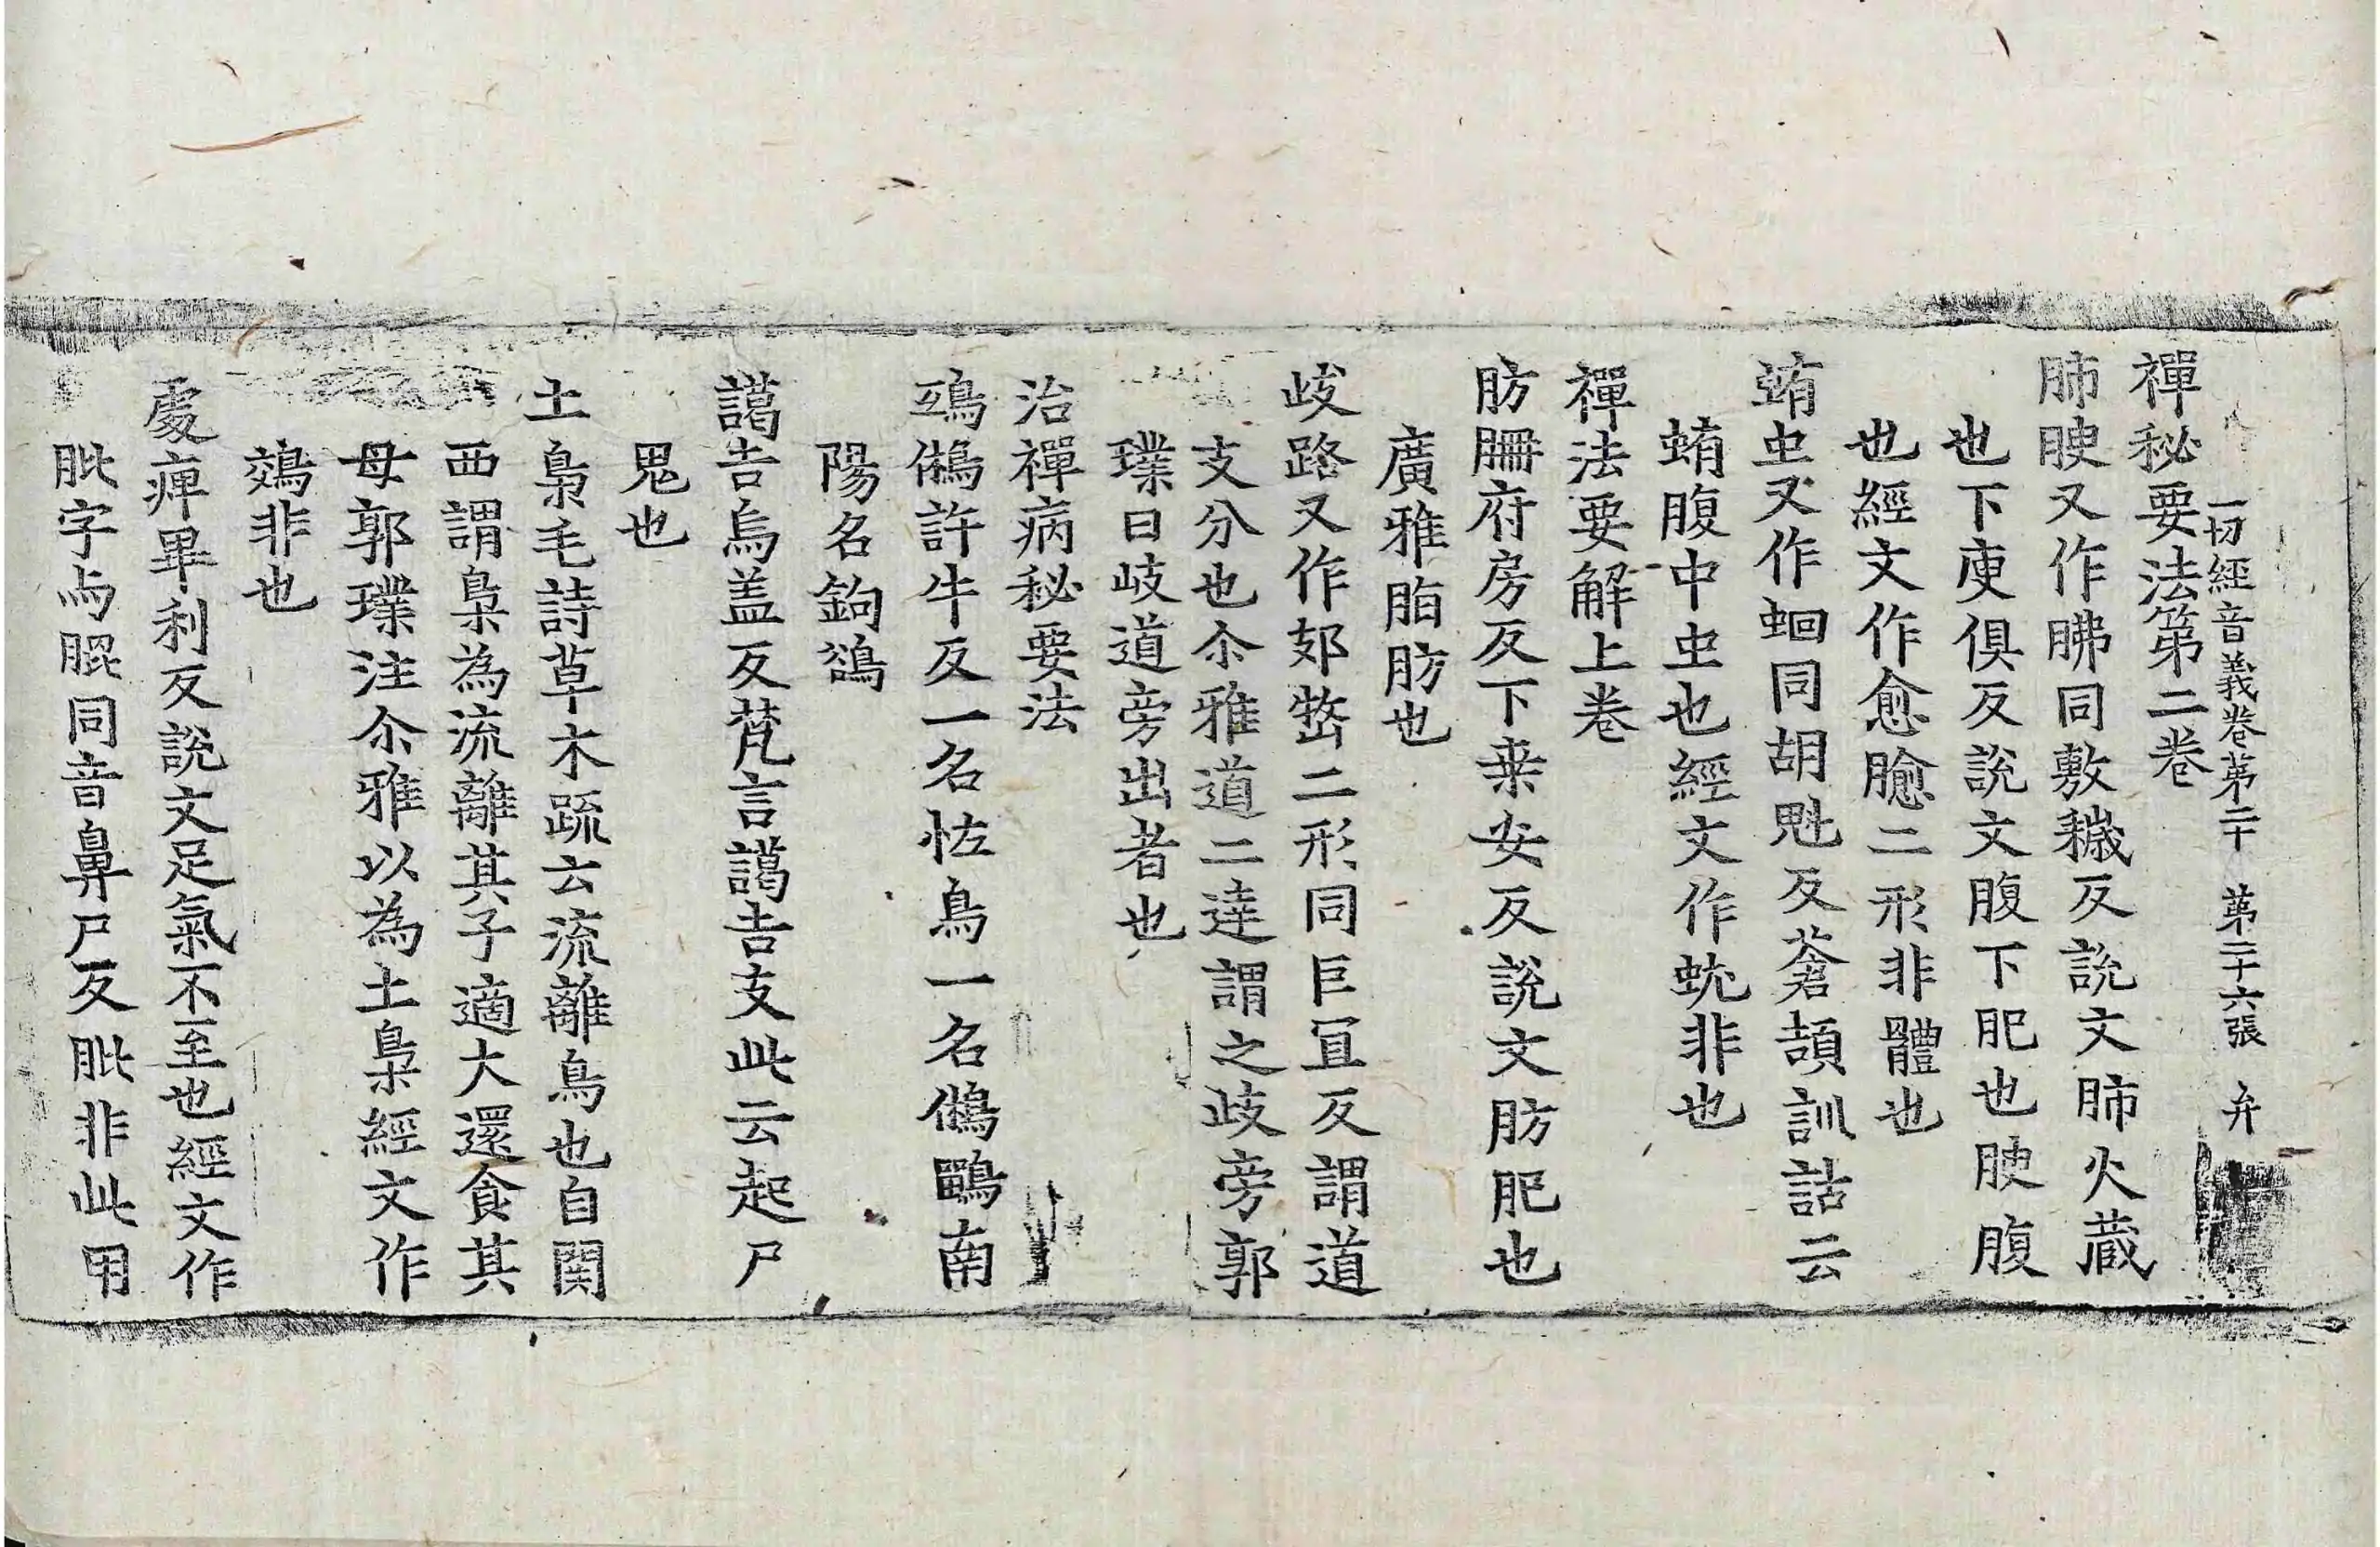 一切經音義卷第二十 第二十六張 弁
禪秘要法第二卷
肺腴又作胇同敷穢反說文肺火蔵
也下庾俱反說文腹下肥也腴腹
也經文作愈膓二形非體也
蛕虫又作蛔同胡魁反蒼頡訓詁云
蛕腹中虫也經文作蚘非也
禪法要解上卷
肪𦙱府房反下桒安反說文肪肥也
廣雅脂肪也
歧路又作郊𡺸二形同巨冝反謂道
支分也尒雅道二達謂之歧旁郭
璞曰岐道旁出者也
治禪病秘要法
鵶鵂許牛反一名恠鳥一名鵂鶹南
陽名鉤鵅
譪吉烏盖反梵言譪吉支此云起尸
鬼也
土梟毛詩草木䟽云流離鳥也自関
西謂梟為流離其子適大還食其
母郭璞注尒雅以為土梟經文作
鵁非也
𠩄痺畢利反說文足氣不至也經文作
肶字与膍同音鼻尸反肶非此用